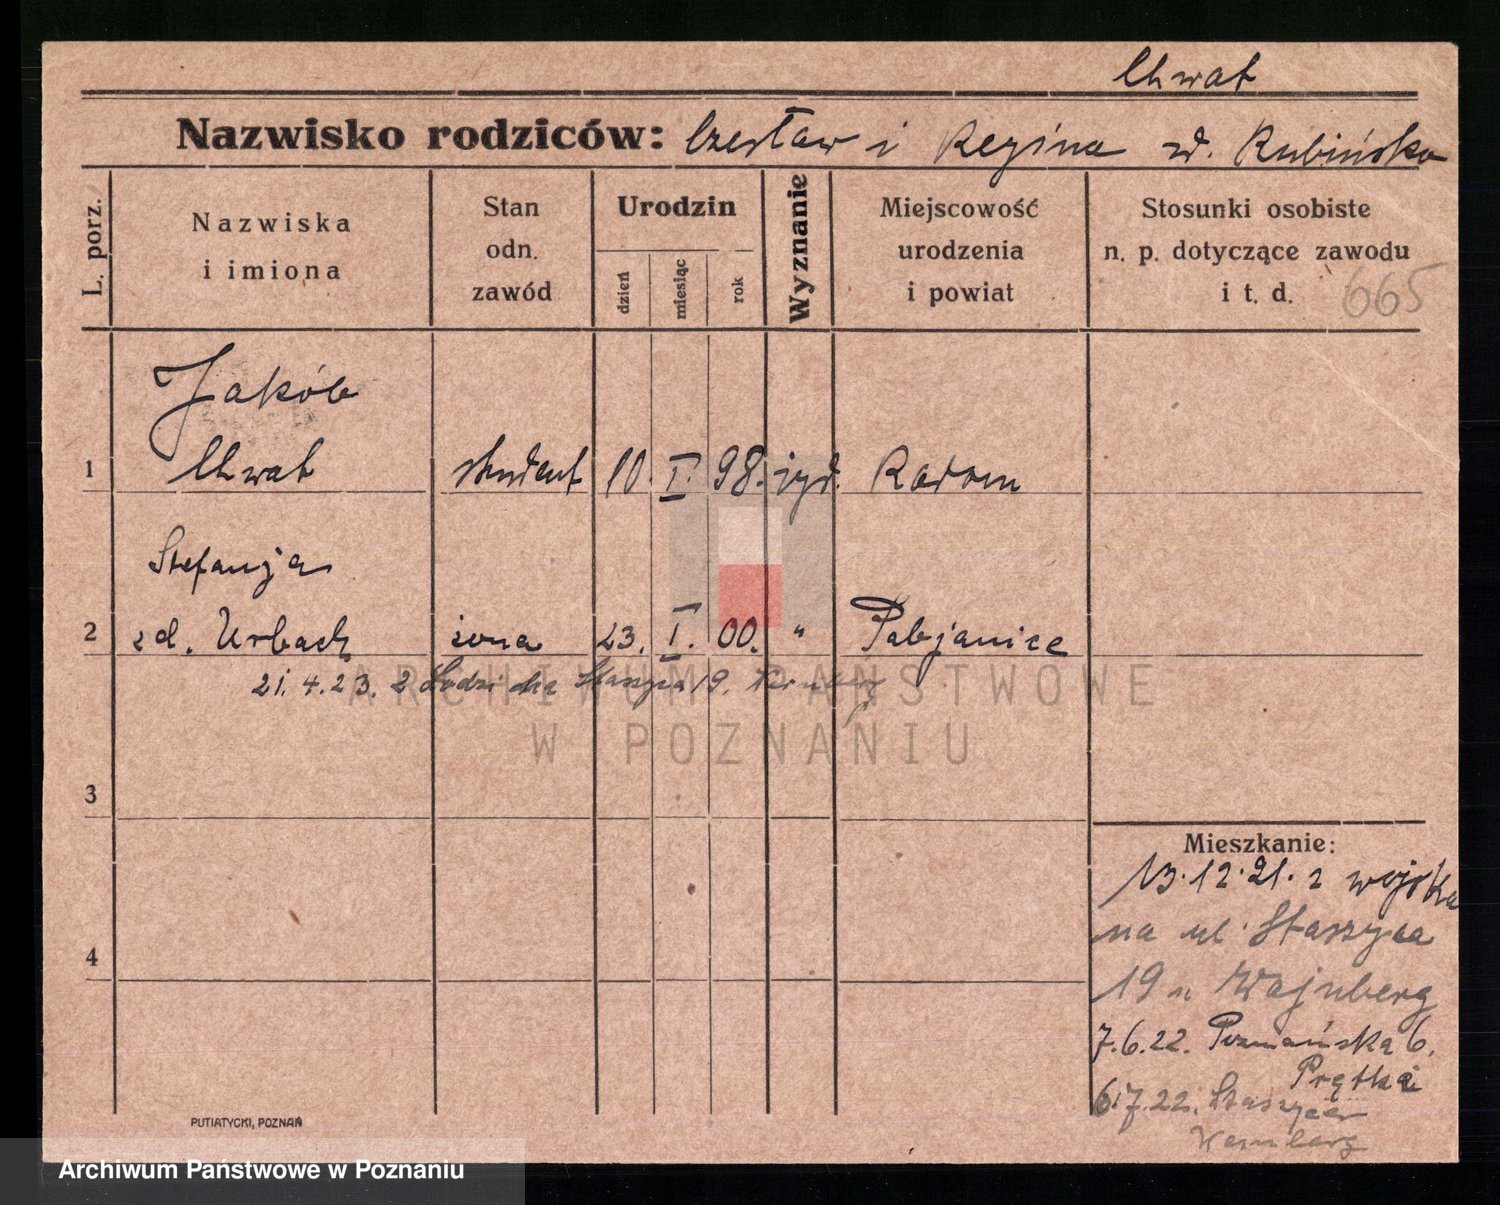 Chwat
Nazwisko rodziców: Czesław i Regina zd. Rubińska
L. porz.
Nazwiska
i imiona
Stan
odn.
zawód
Urodzin
dzień
miesiąc
rok
Wyznanie
Miejscowość
urodzenia
i powiat
Stosunki osobiste
n. p. dotyczące zawodu
i t. d.
665
Jakób
1 Chwat student 10. I. 98. żyd. Radom
Stefanja
2 zd. Urbach żona 23. I. 00. " Pabjanice
21.4.23. z Łodzi Staszyca 19.
ARCHIWUM PAŃSTWOWE
W POZNANIU
3
4
Mieszkanie:
13.12.21. z wojska
na ul. Staszyca
19 u Wajnberg
7.6.22. Poznańska 6.
Prętka
6.7.22. Staszyca
PUTIATYCKI, POZNAŃ
Archiwum Państwowe w Poznaniu